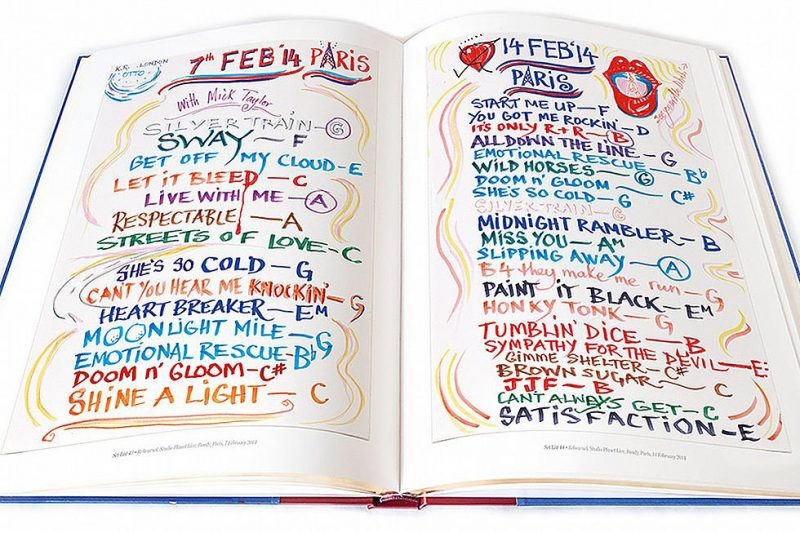 K.R. LONDON
OTTO
7th FEB '14 PARIS
With Mick Taylor
SILVER TRAIN — G
SWAY — F
GET OFF MY CLOUD — E
LET IT BLEED — C
LIVE WITH ME — A
RESPECTABLE — A
STREETS OF LOVE — C
SHE'S SO COLD — G
CAN'T YOU HEAR ME KNOCKIN' — G
HEART BREAKER — EM
MOONLIGHT MILE — G
EMOTIONAL RESCUE — Bb
DOOM n' GLOOM — C#
SHINE A LIGHT — C
Set List 43 • Rehearsal, Studio Planet Live, Bondy, Paris, 7 February 2014
14 FEB '14
PARIS
START ME UP — F
YOU GOT ME ROCKIN — D
IT'S ONLY R+R — B
ALL DOWN THE LINE — G
EMOTIONAL RESCUE — Bb
WILD HORSES — G
DOOM n' GLOOM — C#
SHE'S SO COLD — G
SILVER TRAIN — G
MIDNIGHT RAMBLER — B
MISS YOU — AM
SLIPPING AWAY — A
B4 they make me run — G
PAINT IT BLACK — EM
HONKY TONK — G
TUMBLIN' DICE — B
SYMPATHY FOR THE DEVIL — E
GIMME SHELTER — C#
BROWN SUGAR — C
JJF — B
CANT ALWAYS GET — C
SATISFACTION — E
Set List 44 • Rehearsal, Studio Planet Live, Bondy, Paris, 14 February 2014